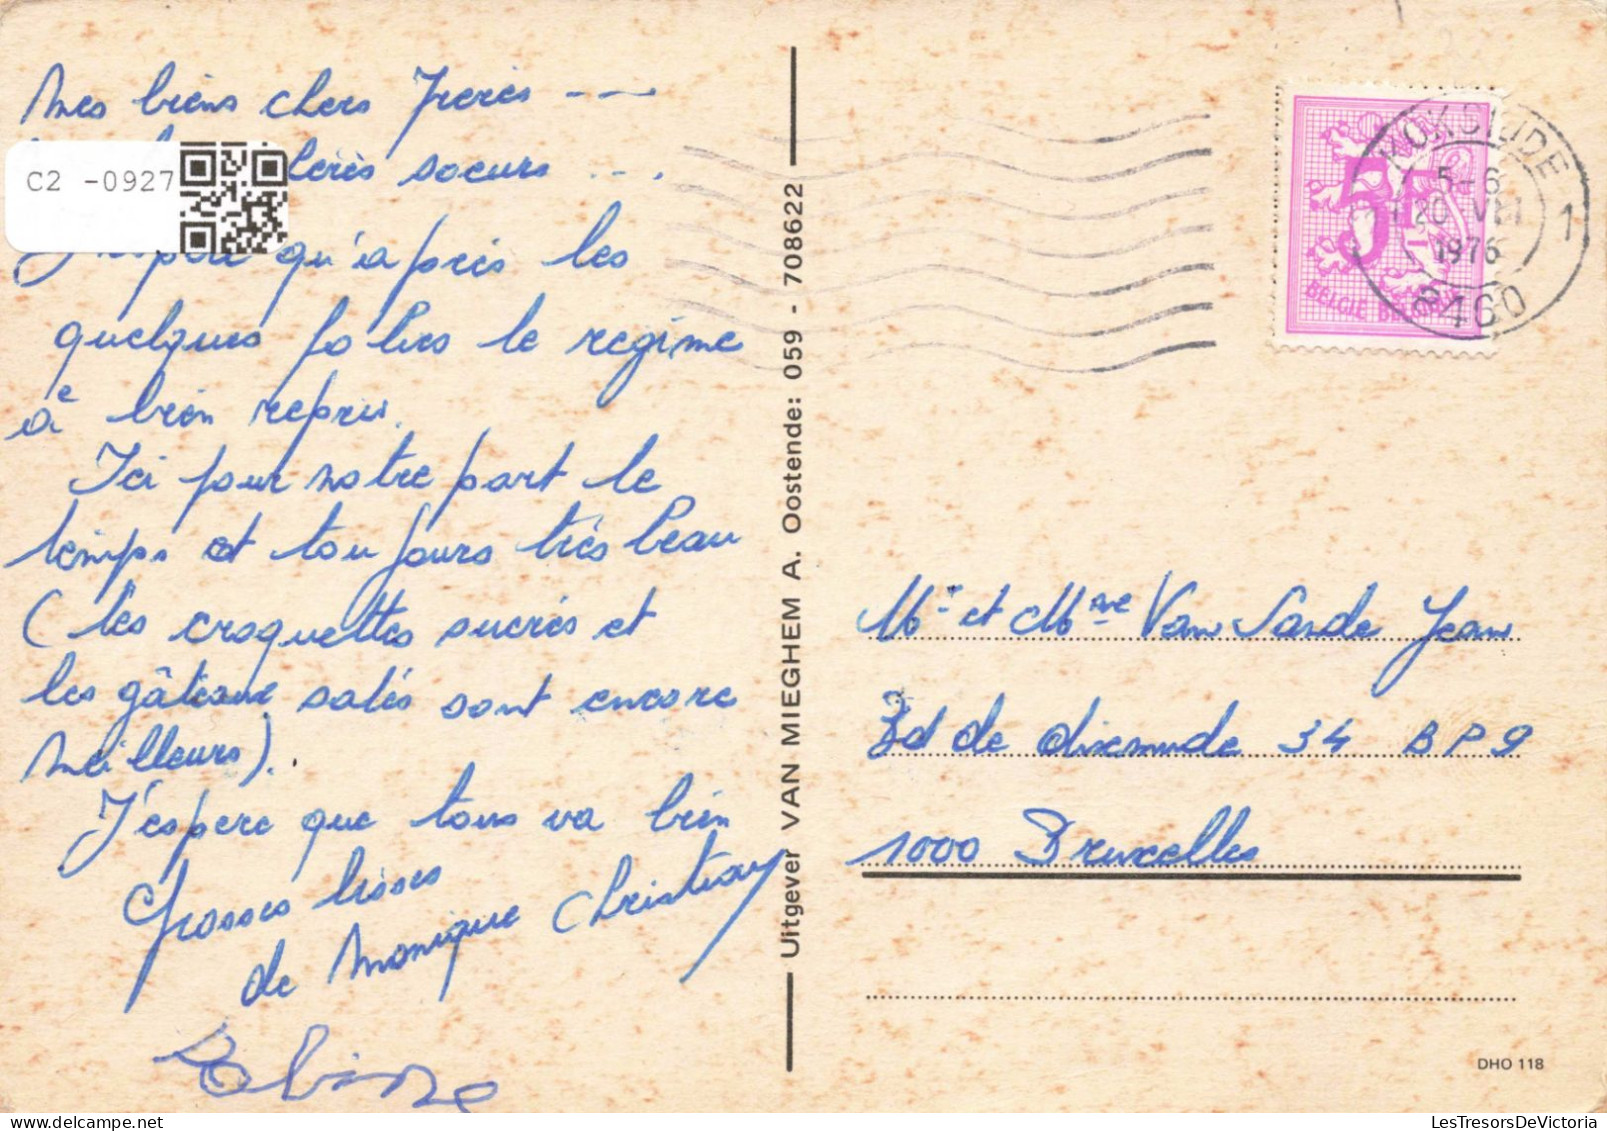 Mes biens chers Freres ---
soeurs ...
J'espère qu'après les
quelques folies le regime
à bien repris.
Ici pour notre part le
temps et toujours très beau
(les croquettes sucrés et
les gâteaux salés sont encore
meilleurs).
J'éspere que tous va bien
Grosses bisses
de Monique Christian
Sabine
C2 -0927
Uitgever VAN MIEGHEM A. Oostende: 059 - 708622
KOKSIJDE 1
5-6
20 VIII
1976
8460
5F
BELGIE BELGIQUE
Mr et Mme Van Sande Jean
Bd de dixmude 34 BP9
1000 Bruxelles
DHO 118
LesTresorsDeVictoria.com